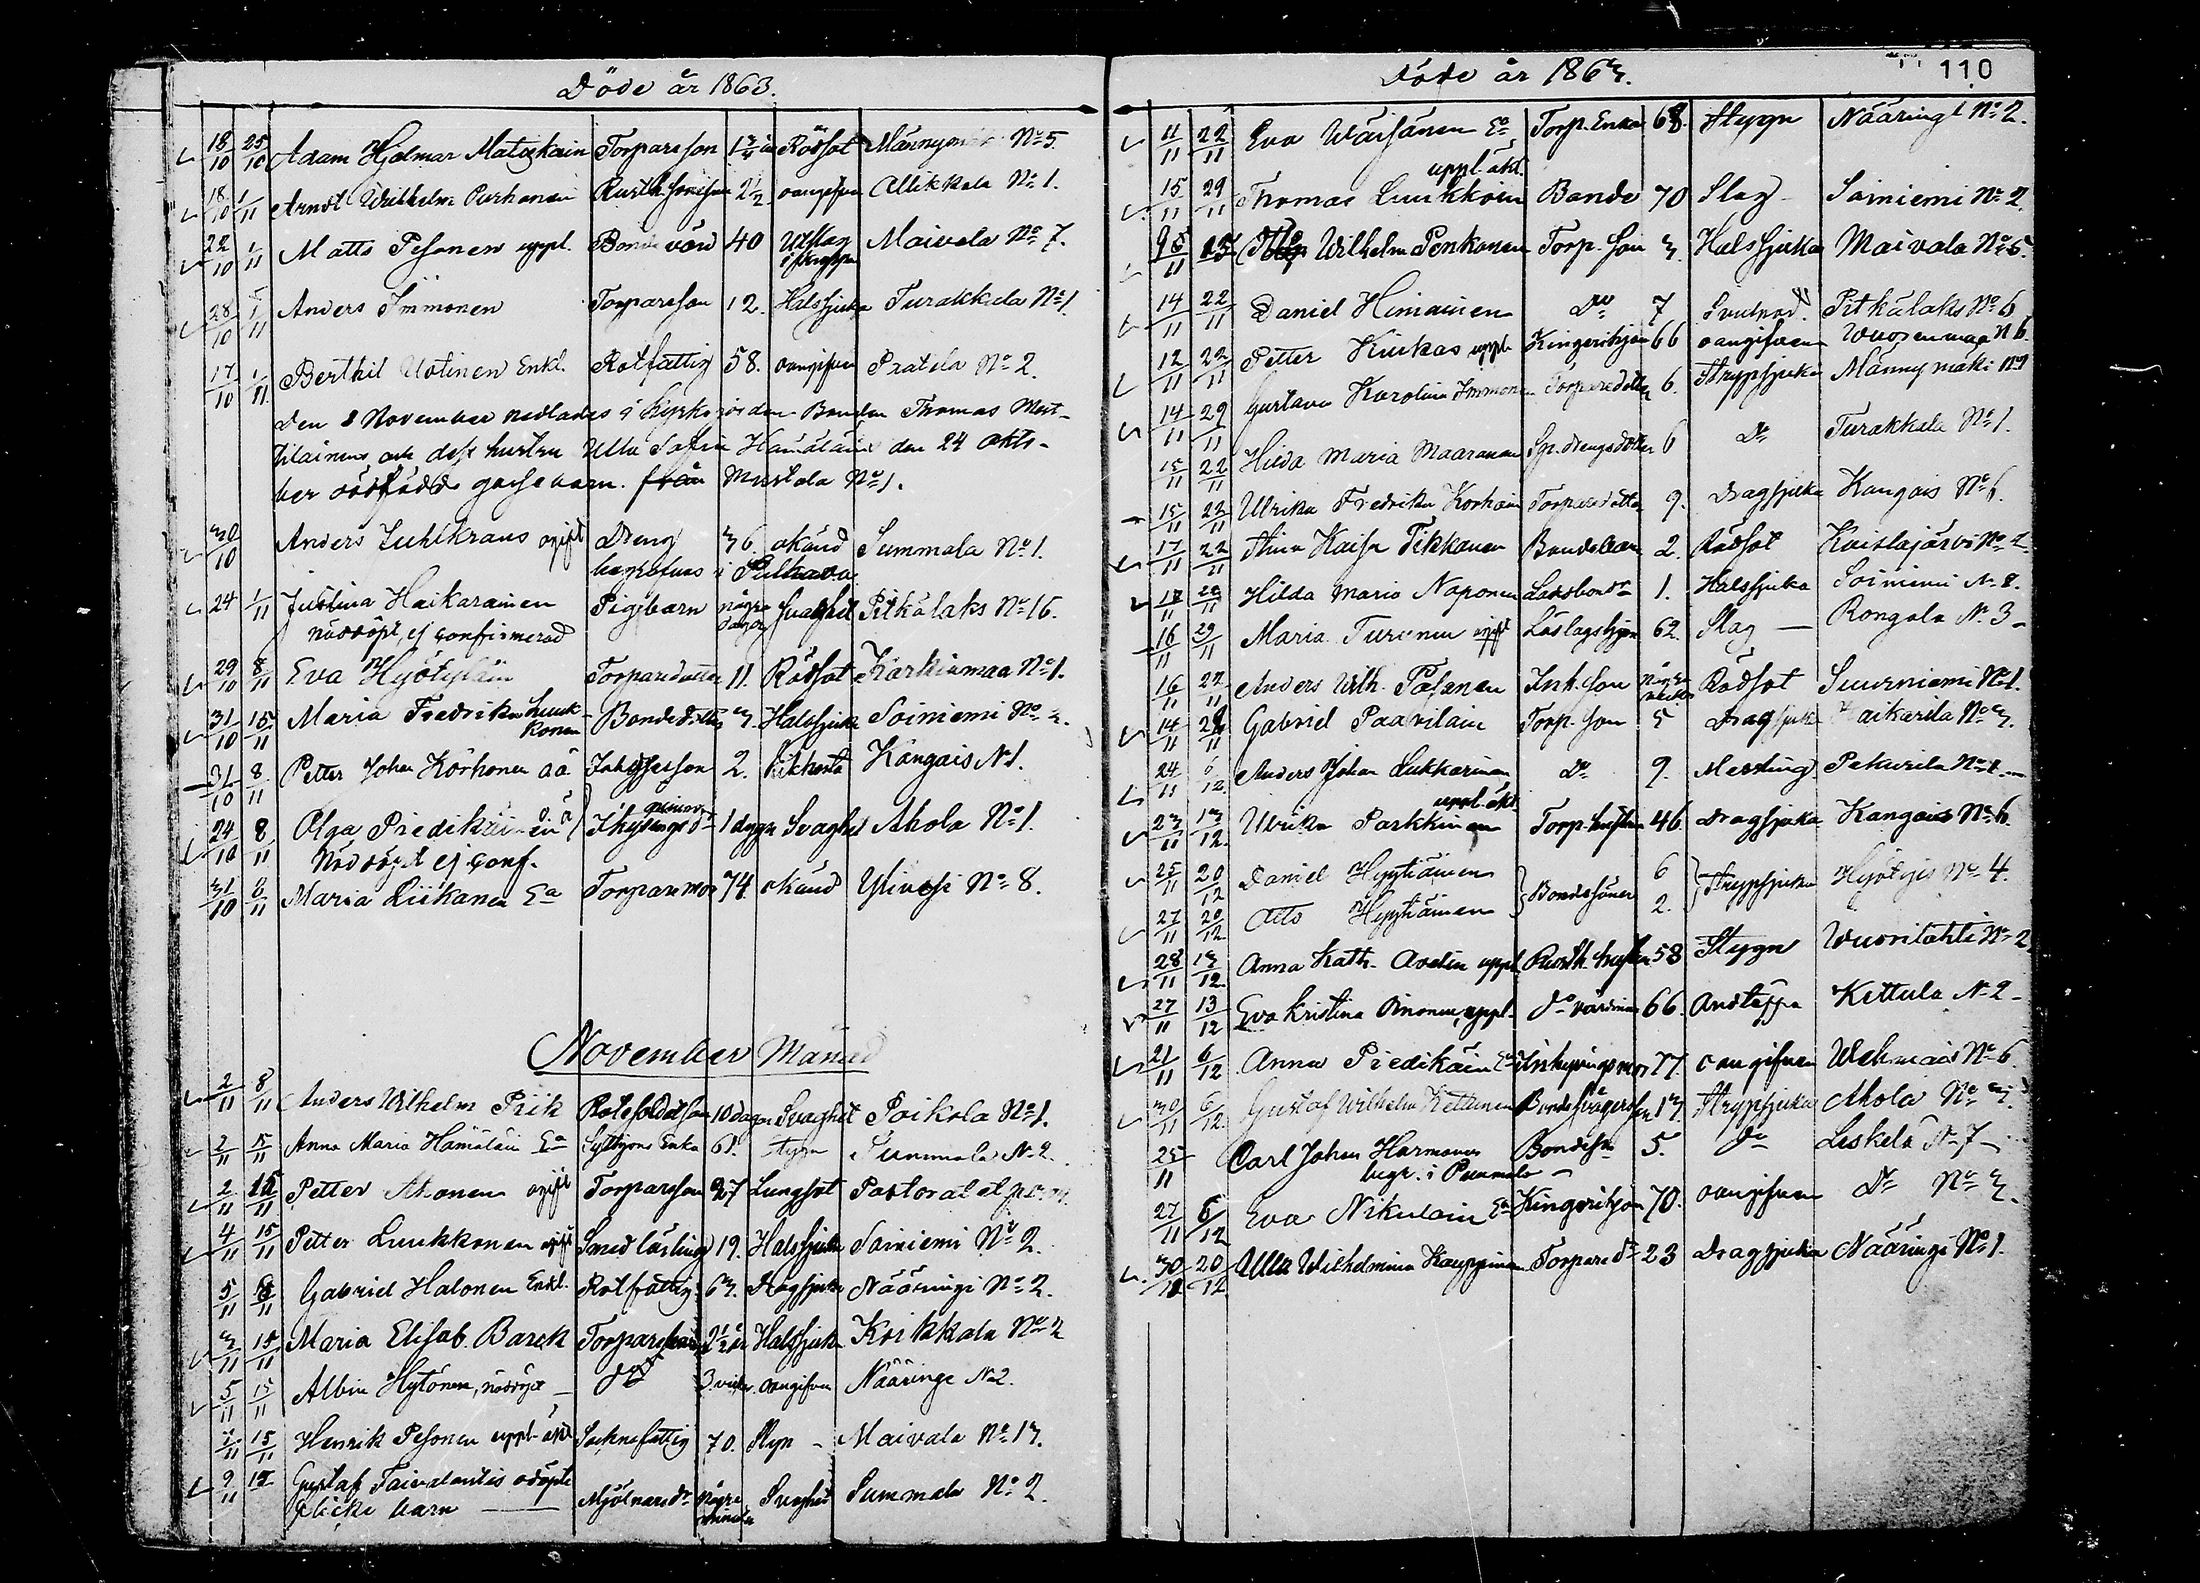 Döde år 1863.
18/10 25/10 Adam Hjelmar Matiskain Torparsson 1 3/4 år Rödsot Männymäki No 5.
18/10 1/11 Arndt Wilhelm Purhonen Rusth. sonson 2 1/2 oangifven Allikkala No 1.
22/10 1/11 Matts Pesonen uppl. Bonde 40 Utslag Maivala No 7.
i kroppen
28/10 1/11 Anders Immonen Torparsson 12. Halssjuka Turakkala No 1.
17/10 1/11 Berthil Uotinen Enkl. Rotfattig 58. oangifven Pratila No 2.
Den 8 November nedlades i Kyrkojorden Bonden Thomas
och dess hustru Ulla Sofia Hämäläin den 24 Okto-
ber dödfödde gossebarn. från Mustola No 1.
30/10 Anders Luhlkraus ogift Dreng 36. okänd Summala No 1.
begrafvas i
24 1/11 Justina Haikarainen Pigobarn några dagar Svaghet Pitkälaks No 16.
nöddöpt, ej confirmerad
29/10 8/11 Eva Hyötyläin Torparedotter 11. Rödsot Karkiamaa No 1.
31/10 15/11 Maria Fredrika Luukkonen Bondedotter 3. Halssjuka Soiniemi No 2.
31/10 8/11 Petter Johan Korhonen oä 2. Kikhosta Kangais N 1.
24/10 8/11 Olga Predikäinen oä 1 dygn Svaghet Ahola No 1.
Nöddöpt ej conf.
31/10 8/11 Maria Liikanen Ea Torparemor 74. okänd Ylivesi No 8.
November Månad
2/11 8/11 Anders Wilhelm Piik Rotesoldatson 10 dagar Svaghet Poikola No 1.
2/11 15/11 Anna Maria Hämäläin Ea Enka 61. Stygn Summala N 2.
2/11 15/11 Petter Ahonen ogift Torparsson 27 Lungsot Pastoratet
4/11 15/11 Petter Luukkonen ogift Smed lärling 19. Halssjuka Soiniemi No 2.
5/11 Gabriel Halonen Enkl. Rotfattig 63. Dragsjuka Nääringi No 2.
3/11 15/11 Maria Elisab. Barck Torparebarn 2 1/2 år Halssjuka Koikkala No 2
5/11 15/11 Albin Hytönen, nöddöpt Do 3 veckor oangifven Nääringe N 2.
15/11 Henrik Pesonen uppl. äkt. Socknefattig 70. Styn Maivala No 13.
9/11 Gustaf Taivalantis odöpte
flicke barn Mjölnaredr Några minuter Svaghet Summala No 2.
Döde år 1863.
110
11/11 22/11 Eva Wäisänen Ea Torp. Enka 68. Stygn Nääringi No 2.
uppl. äkt.
15/11 29/11 Thomas Luukkoin Bonde 70 Slag Soiniemi No 2.
15/11 Wilhelm Penkonen Torp. son 3. Halssjuka Maivala No 5.
14/11 22/11 Daniel Hiniäinen Do 7 Pitkälaks No 6
12/11 22/11 Petter Kiukas uppl. 66 oangifven Wuorenmaa N 6.
14/11 29/11 Gustava Karolina Immonen Torparedotter 6. Strypsjuka Männymäki No
15/11 22/11 Hilda Maria Maaranen Sp. drengsdotter 6 Do Turakkala No 1.
15/11 22/11 Ulrika Fredrika Korhoin Torparedotter 9. Dragsjuka Kangais No 6.
17/11 22/11 Anna Kaisa Tikkanen Bondebarn 2. Rödsot Kaislajärvi No 2
Hilda Maria Naponen 1. Halssjuka Soiniemi N 8.
16/11 29/11 Maria Turunen ogift 62. Slag Rongala N 3
16/11 22/11 Anders Wilh. Pesonen Inh. son Några veckor Rödsot Suurniemi No 1.
14/11 Gabriel Paavilain Torp. son 5 Dragsjuka Haikarila No 3.
24/11 6/12 Anders Johan Lukkarinen Do 9. Messling Pekurila No 1
uppl. äkt.
23/11 13/12 Ulrika Parkkinen Torp. hustru 46. Dragsjuka Kangais No 6.
25/11 20/12 Daniel Hyytiäinen Bondesöner 6 Strypsjuka Hyötyis No 4.
27/11 20/12 Otto Hyytiäinen 2.
28/11 13/12 Anna Kath. Avelin uppl. Rusth. hustru 58 Stygn Wuoritahti No 2
27/11 13/12 Eva Kristina Oinonen, uppl. do värdinna 66. Andtäppa Kettula N 2
21/11 6/12 Anna Predikäin Ea Inhysingsmor 77. oangifven Wehmais No 6.
30/11 6/12 Gustaf Wilhelm Kettunen 13. Strypsjuka Ahola No 3.
25/11 Carl Johan Harmonen Bondeson 5. Do Leskelä N 7
begr. i Pummala
27/11 6/12 Eva Nikulain Ea 70. oangifven Do No 3.
30/11 20/12 Ulla Wilhelmina Kauppinen Torpare dr 23 Dragsjuka Nääringi No 1.